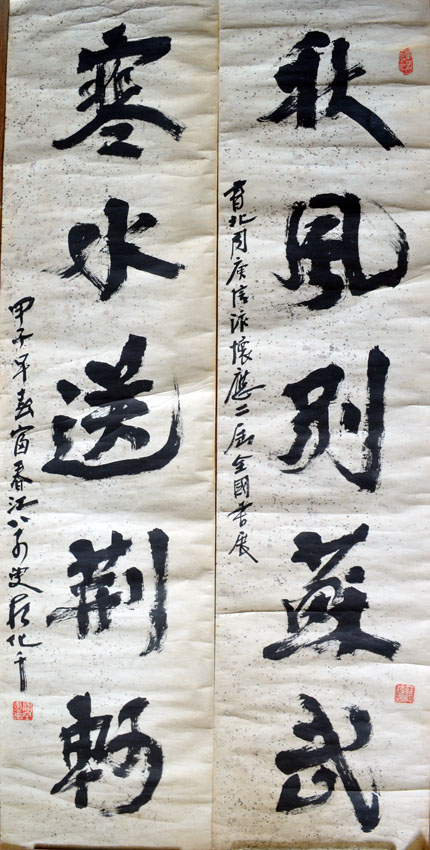 秋風別蘇武
北周庾信詠懷應二屆全國書展
寒水送荊軻
甲子早春富春江八叟化千